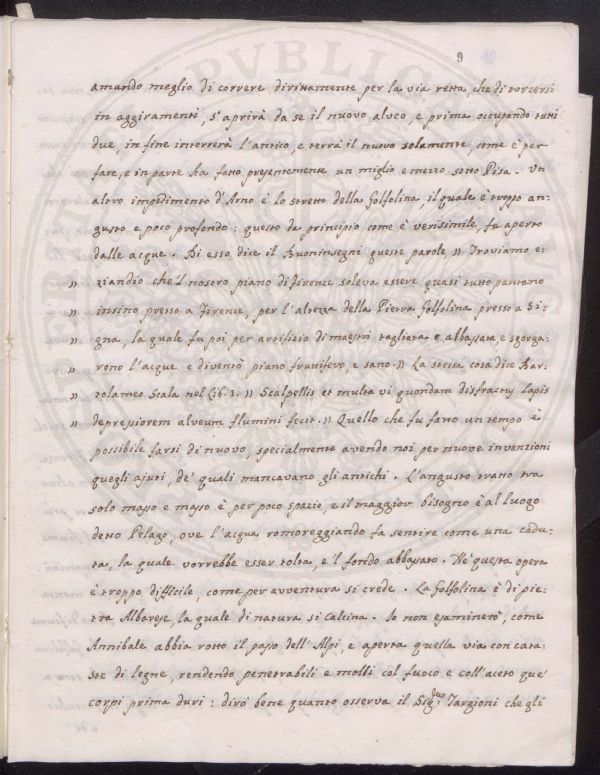 9 10
amundo meglio di correre dirittamente per la via retta, che di torcersi
in aggiramenti, s'aprirà da se il nuovo alveo, e prima occupando tutti
due, in fine interrerà l'antico, e terrà il nuovo solamente, come è per
fare, e in parte ha fatto presentemente un miglio e mezzo sotto Pisa. Un
altro impedimento d'Arno è lo stretto della Golfolina il quale è troppo an-
gusto e poco profondo: questo da principio come è verisimile, fu aperto
dalle acque. Di esso dice il Buoninsegni queste parole „ Troviamo e-
„ ziandio che 'l nostro piano di Firenze soleva essere quasi tutto pantano
„ insino presso a Firenze, per l'altezza della Pietra Golfolina presso a Si-
„ gna, la quale fu poi per artifizio di maestri tagliata e abbassata, e sgorga-
„ rono l'acque e diventò piano fruttifero, e sano. „ La stessa cosa dice Bar-
„ tolameo Scala nel Lib. 1. „ Scalpellis et multa vi quondam disfractus lapis
„ depressiorem alveum flumini fecit. „ Quello che fu fatto un tempo è
possibile farsi di nuovo, specialmente avendo noi per nuove invenzioni
quegli ajuti, de' quali mancavano gli antichi. L'angusto tratto tra
solo masso e masso è per poco spazio, e il maggior bisogno è al luogo
detto Pelago, ove l'acqua romoreggiando fa sentire come una cadu-
ta, la quale vorrebbe esser tolta, e 'l fondo abbassato. Nè questa opera
è troppo difficile, come per avventura si crede. La Golfolina è di pie-
tra Albarese, la quale di natura si calcina. Io non esaminerò, come
Annibale abbia rotto il passo dell'Alpi, e aperta quella via con cata-
ste di legne, rendendo penetrabili e molli col fuoco e coll'aceto que'
corpi prima duri: dirò bene quanto osserva il Sig.r Targioni che gli